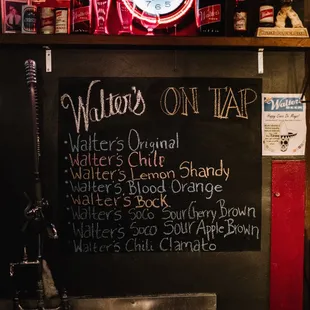 Walter's ON TAP
Walter's Original
Walter's Chile
Walter's Lemon Shandy
Walter's Blood Orange
Walter's Bock
Walter's SoCo Sour Cherry Brown
Walter's Soco Sour Apple Brown
Walter's Chili Clamato